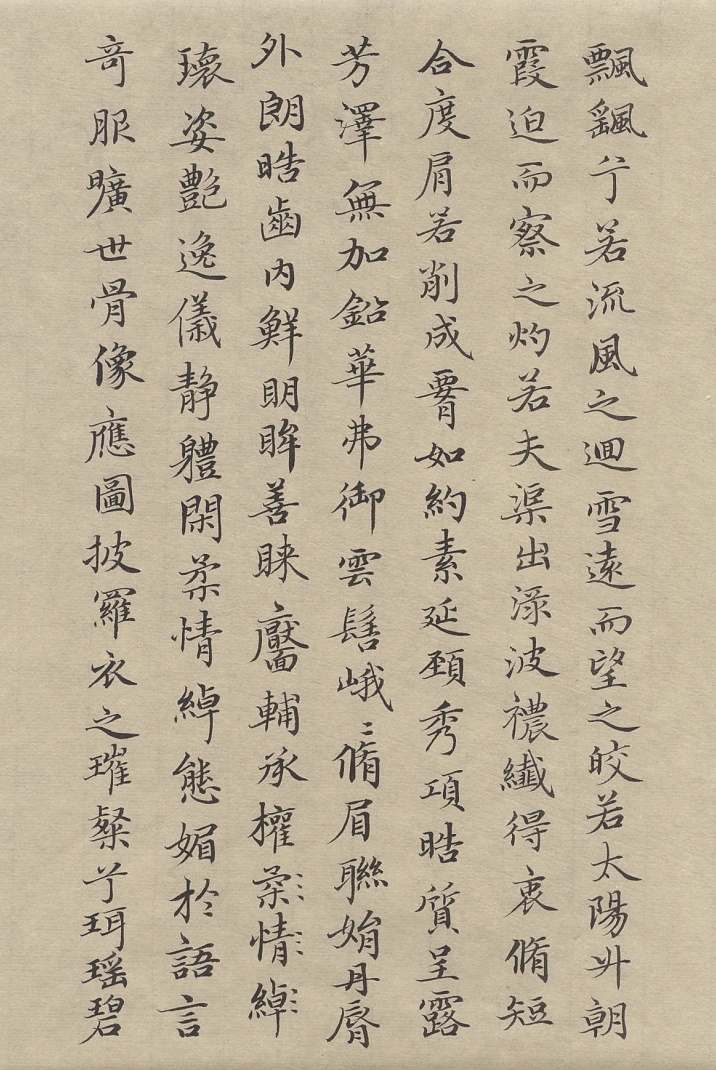 飄颻兮若流風之迴雪遠而望之皎若太陽升朝
霞迫而察之灼若夫渠出淥波襛纖得衷脩短
合度肩若削成䙅如約素延頚秀項皓質呈露
芳澤無加鉛華弗御雲髻峨〻脩眉聯娟丹脣
外朗皓齒內鮮明眸善睞靨輔承權柔情綽
瓌姿艷逸儀靜體閑柔情綽態媚於語言
竒服曠世骨像應圖披羅衣之璀粲兮珥瑶碧